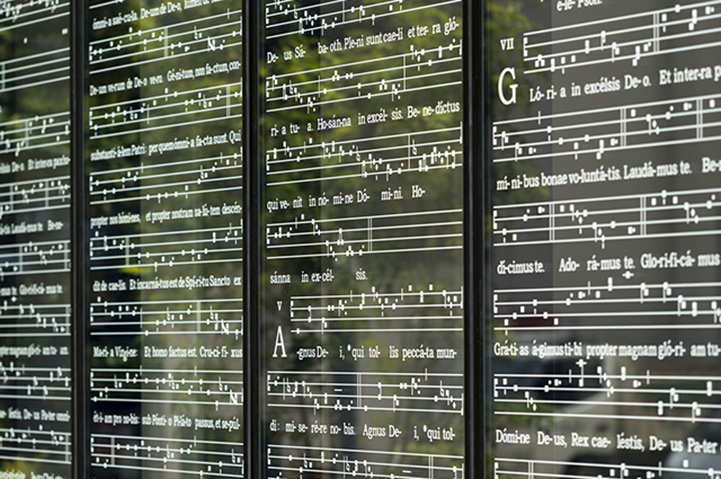 De- o. Et in ter-ra
Laudá-mus te. Be-ne-
te. Glo-ri-fi-cá-mus
magnam gló-ri- am tu- am.
léstis, De- us Pa-ter omní-
ómni-a saé-cu-la. De-um de De-o,
De-um ve-rum de De- o ve-ro. Gé-ni-tum, non fa-ctum, con-
substanti- á-lem Patri: per quem ómni- a fa-cta sunt. Qui
propter nos hómi-nes, et propter nostram sa-lú-tem descén-
dit de cae-lis. Et incarná-tus est de Spí-ri-tu Sancto ex
Ma-rí-a Vírgi-ne: Et homo factus est. Cru-ci-fí- xus
ét-i-am pro no-bis: sub Pónti- o Pi-lá-to passus, et se-púl-
De- us Sá- ba- oth. Ple-ni sunt cae-li et ter- ra gló-
ri- a tu- a. Ho-sánna in excél- sis. Be- ne-díctus
qui ve- nit in nó- mi-ne Dó- mi-ni. Ho-
sánna in ex-cél- sis.
V
A -gnus De- i, *qui tol- lis peccá-ta mun-
di: mi- se- ré-re no- bis. Agnus De- i, *qui tol-
e-lé- i-son.
VII
G Ló- ri- a in excélsis De- o. Et in ter-ra p
mí-ni-bus bonae vo-lun-tá-tis. Laudá-mus te. Be-
dí-cimus te. Ado- rá-mus te. Glo-ri-fi-cá-mus
Grá-ti-as á-gimus ti-bi propter magnam gló-ri- am tu-
Dómi-ne De-us, Rex cae- léstis, De- us Pa-ter